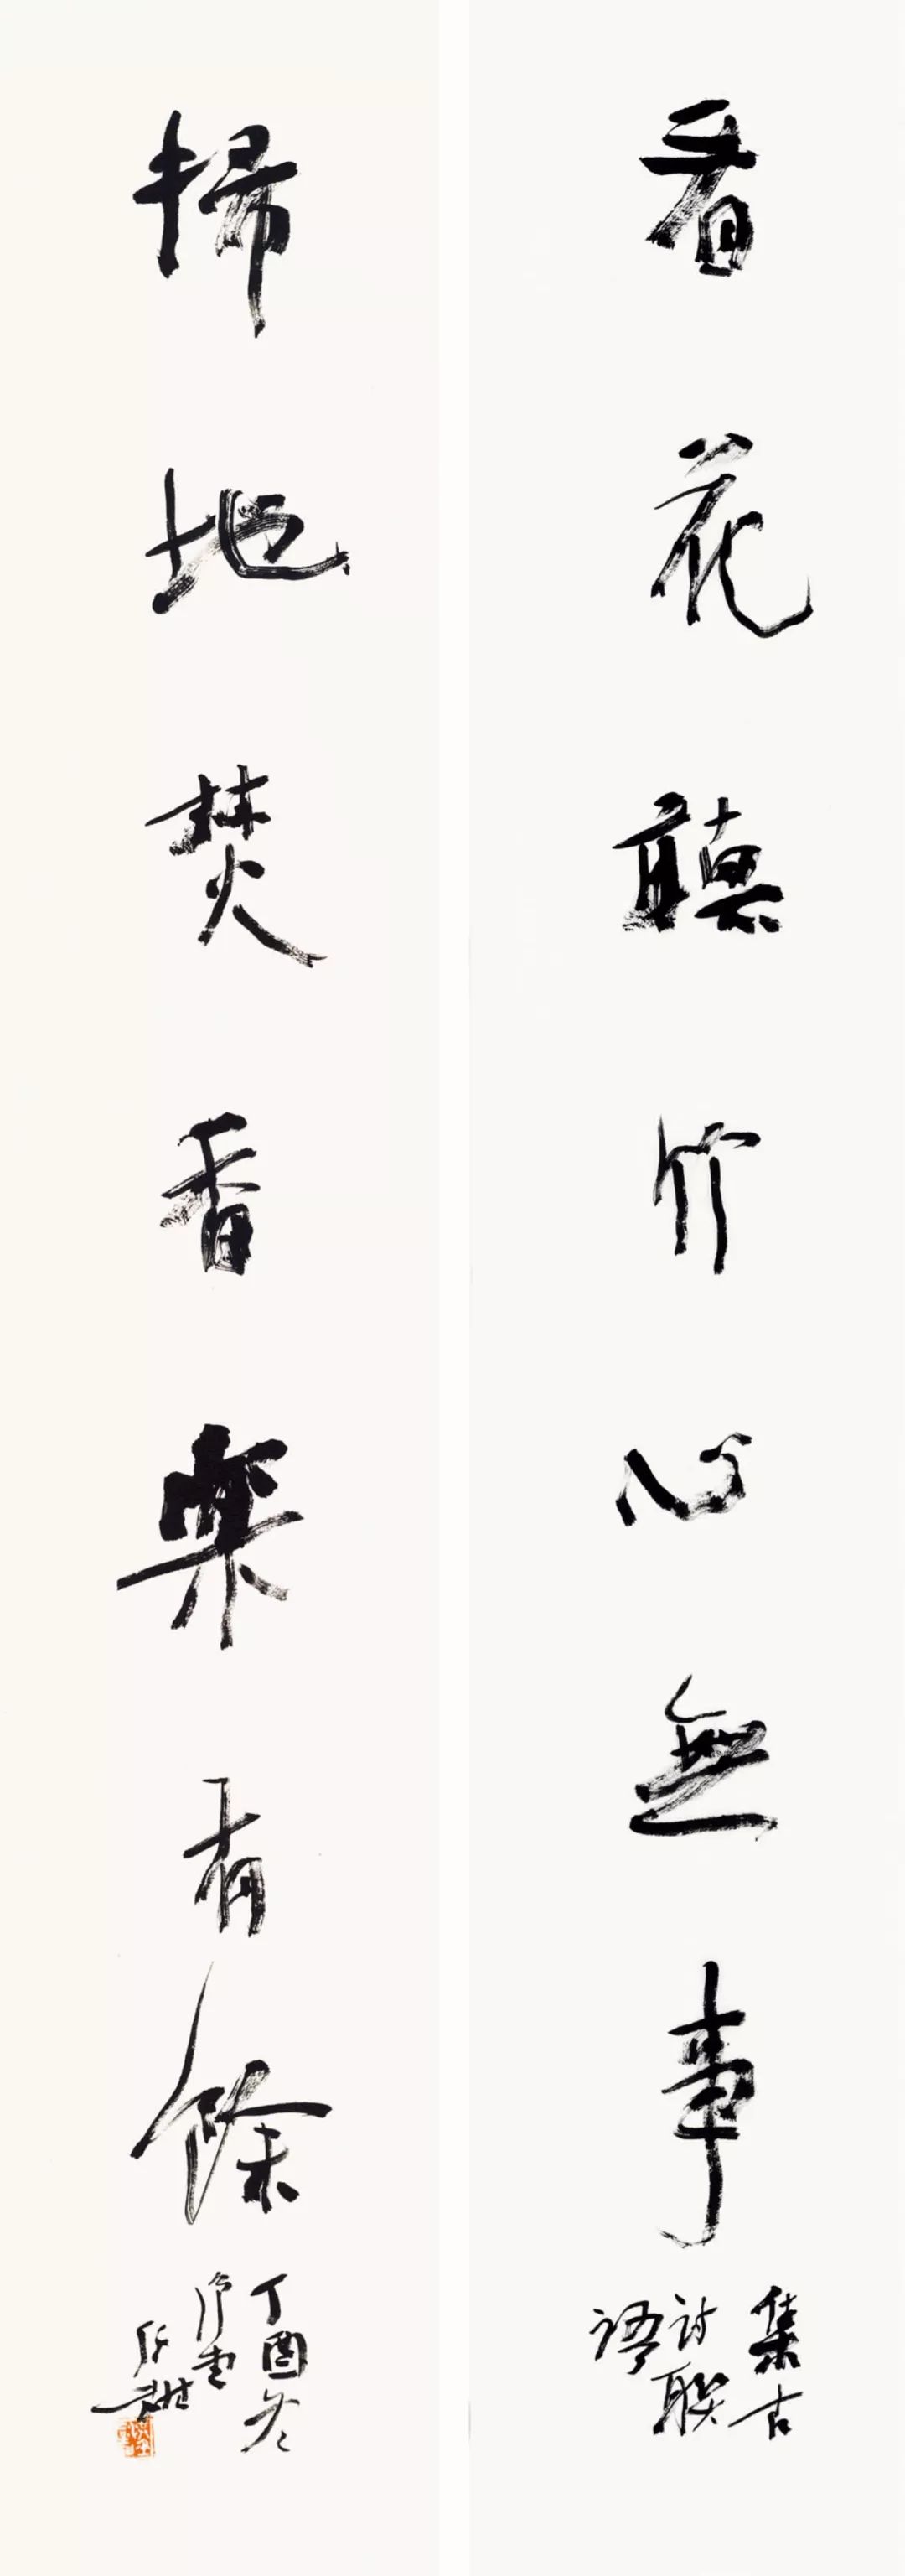 看花聽竹心無事
集古
詩聯
語
掃地焚香樂有餘
丁酉冬